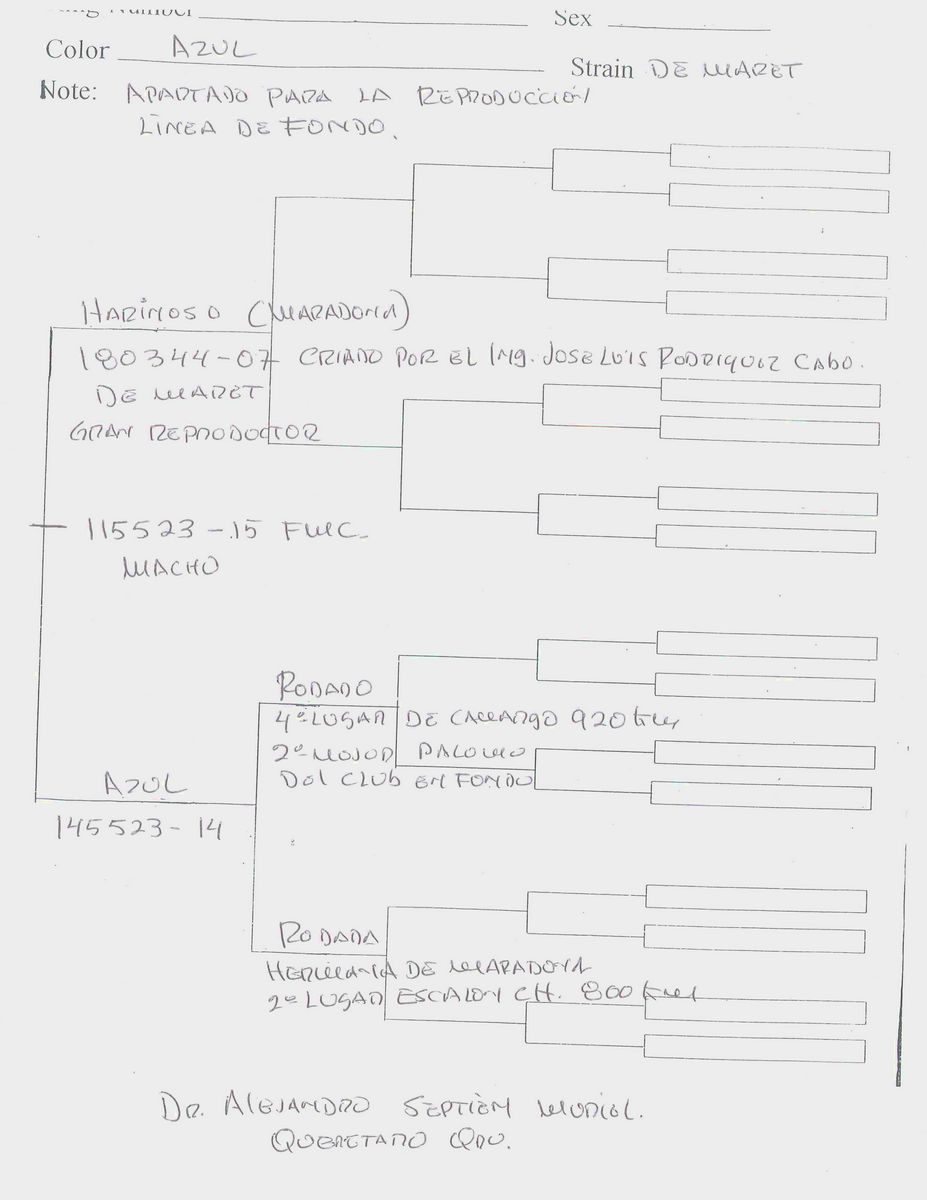 Sex
Color AZUL
Strain DE MARET
Note: APARTADO PARA LA REPRODUCCIÓN
LINEA DE FONDO.
HARINOSO (MARADONA)
180344-07 CRIADO POR EL ING. JOSE LUIS RODRIQUEZ CABO.
DE MARET
GRAN REPRODOCTOR
115523-15 FMC.
MACHO
RODADO
4º LUGAR DE CAMARGO 920 Km
2º MEJOR PALOMO
DEL CLUB EN FONDO
AZUL
145523-14
RODADA
HERMANA DE MARADONA
2º LUGAR ESCALON CH. 800 Km
DR. ALEJANDRO SEPTIEM MURIEL.
QUERETARO QRO.